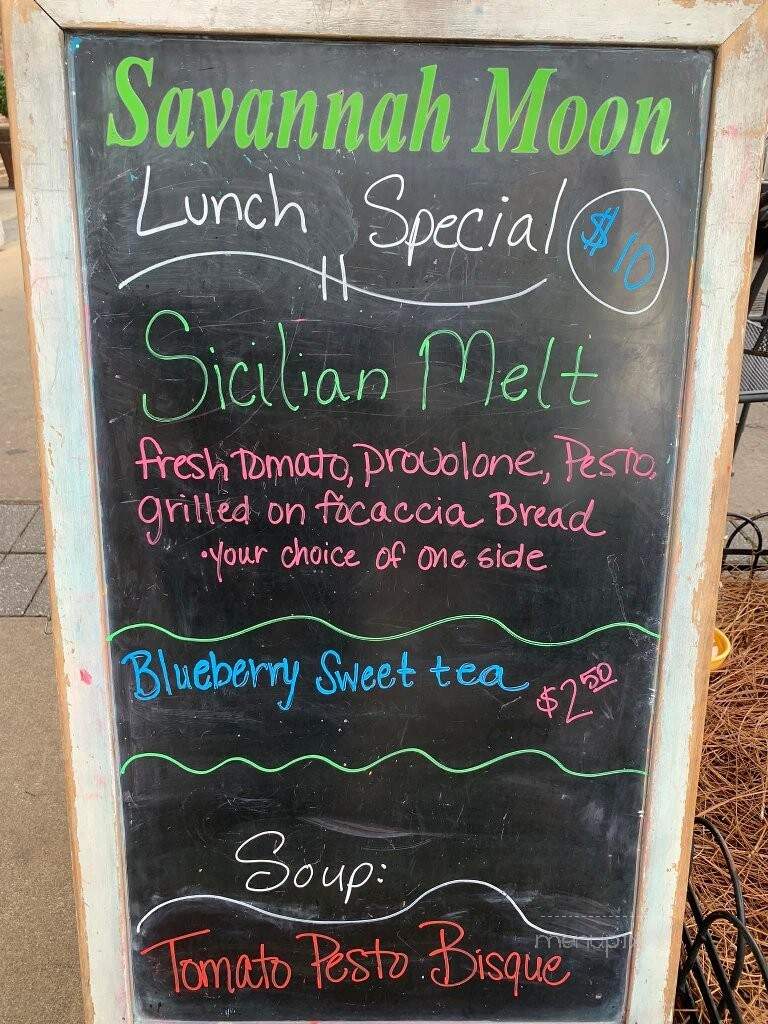 Savannah Moon
Lunch Special $10
Sicilian Melt
fresh Tomato, Provolone, Pesto,
grilled on focaccia Bread
•your choice of one side
Blueberry Sweet tea $2.50
Soup:
Tomato Pesto Bisque